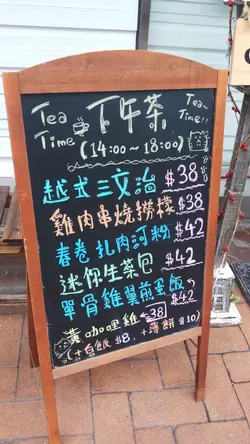 Tea Time 下午茶 Tea Time!!
(14:00~18:00)
越式三文治 $38
雞肉串燒撈檬 $38
春卷扎肉河粉 $42
迷你生菜包 $42
單骨雞翼煎蛋飯 $42
黃咖喱雞 $38
(+白飯 $8, +薄餅 $10)